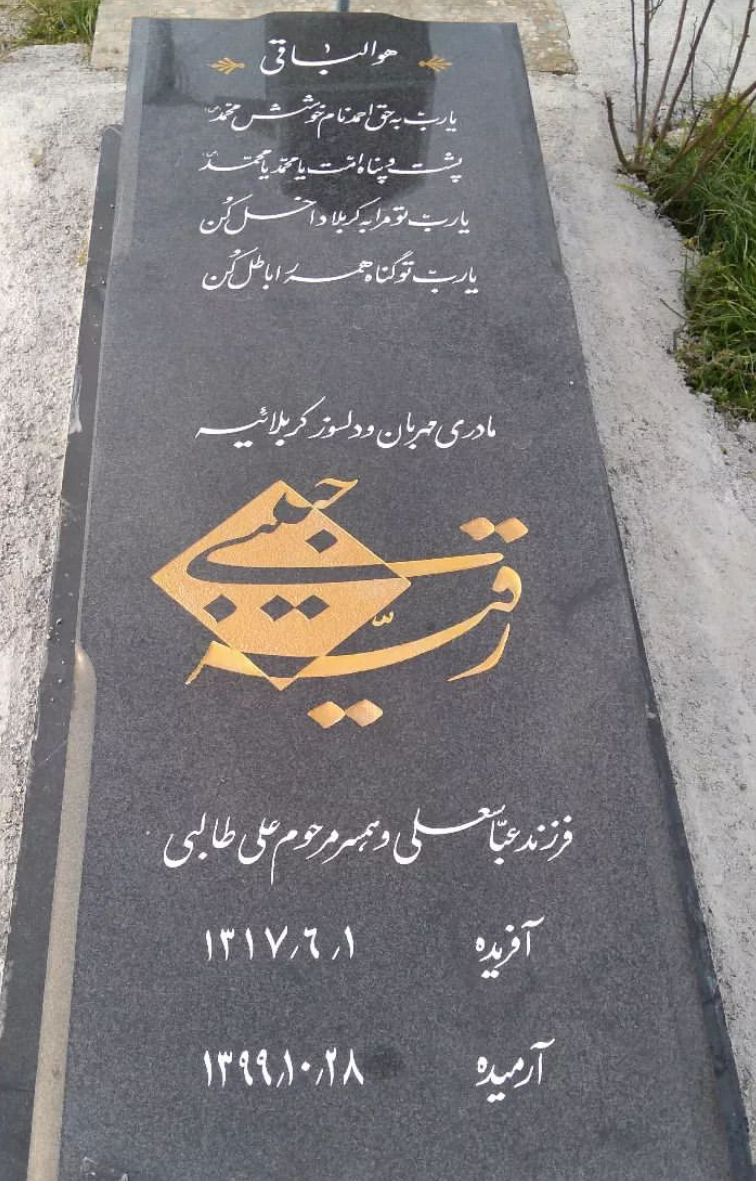 هوالباقی
یارب به حق احمد نام خوشش محمدؐ
پشت و پناه امت یا محمد یا محمدؐ
یارب تو مرا به کربلا داخل کن
یارب تو گناه همه را باطل کن
مادری مهربان و دلسوز کربلائیه
رقیه حبیبی
فرزند عباسعلی و همسر مرحوم علی طالبی
آفریده ۱۳۱۷٫۶٫۱
آرمیده ۱۳۹۹٫۱۰٫۲۸